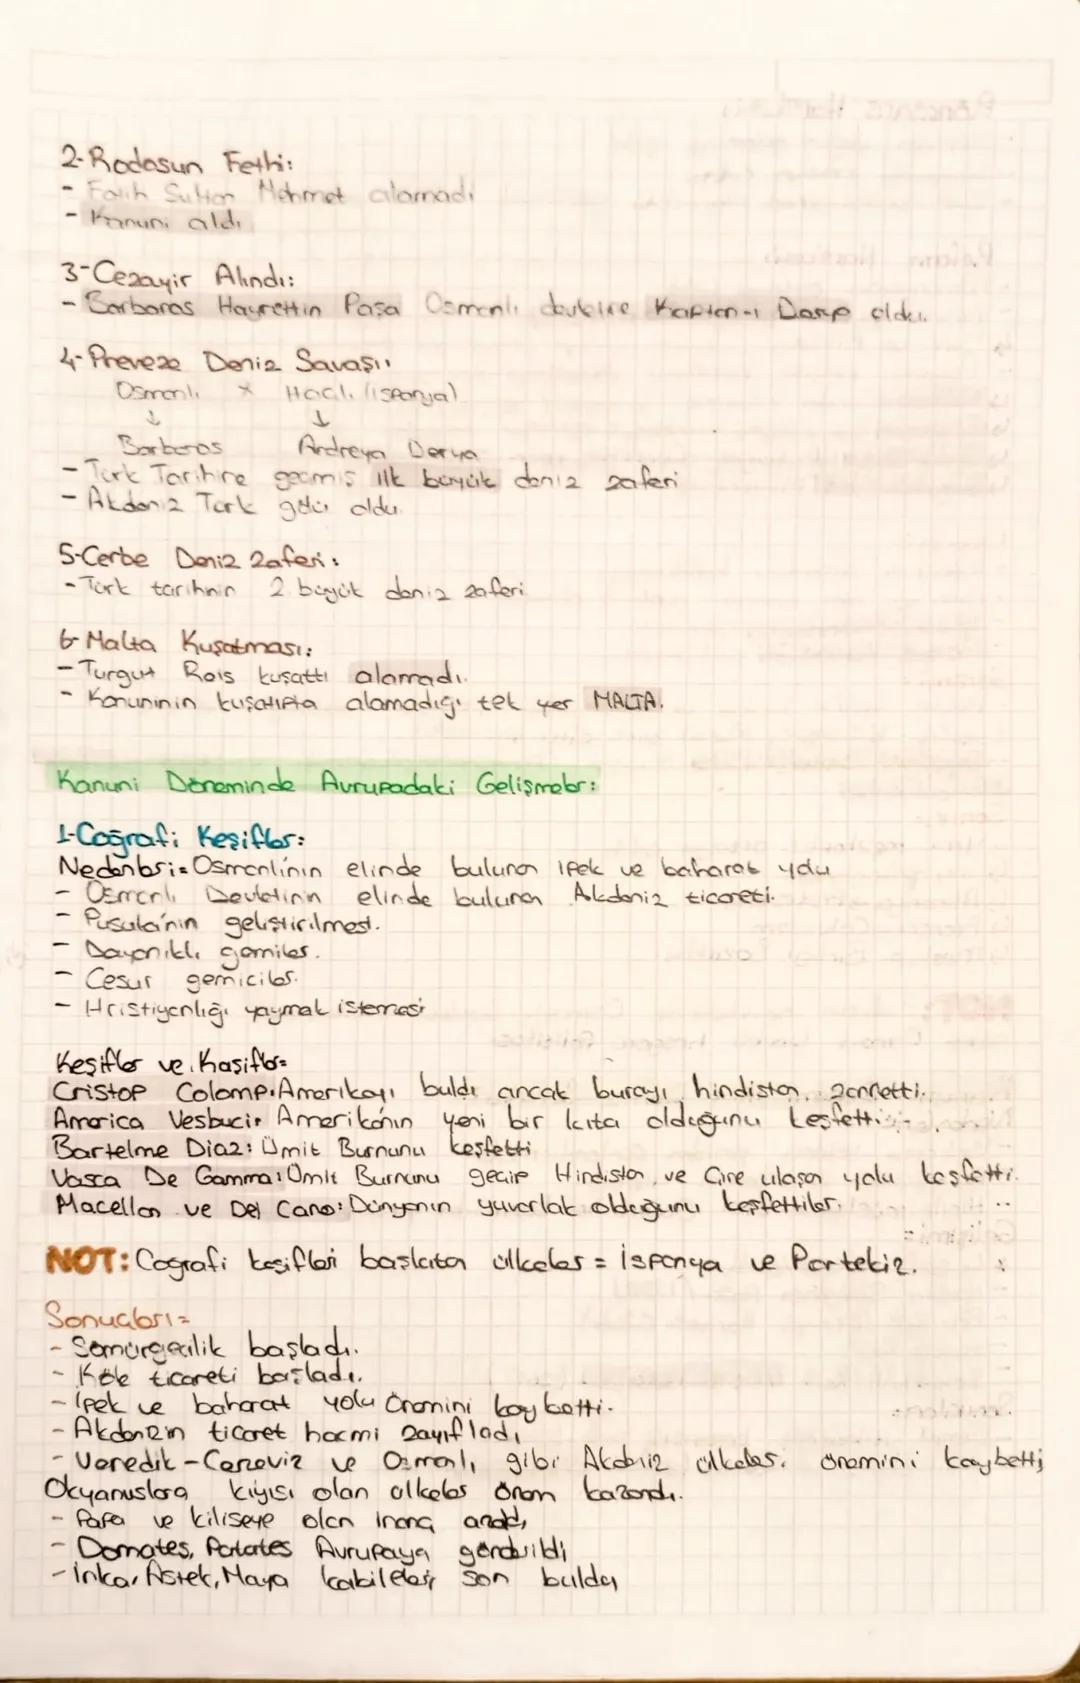 2-Rodosun Fethi:
- Fatih Sultan Mehmet alamadı
- Kanuni aldı
3-Cezayir Alındı:
- Barbaros Hayrettin Paşa Osmanlı devletine Kaptan-ı Derya oldu.
4-Preveze Deniz Savaşı:
Osmanlı x Haçlı (ispanya)
↓ ↓
Barboros Andreya Derya
- Türk Tarihine geçmiş ilk büyük deniz zaferi
- Akdeniz Türk gölü oldu
5-Cerbe Deniz Zaferi:
- Türk tarihinin 2. büyük deniz zaferi
6-Malta Kuşatması:
- Turgut Reis kuşattı alamadı.
- Kanuninin kuşatıpta alamadığı tek yer MALTA.
Kanuni Döneminde Avrupadaki Gelişmeler:
1-Coğrafi Keşifler:
Nedenleri= Osmanlı'nın elinde bulunan ipek ve baharat yolu
- Osmanlı Devletinin elinde bulunan Akdeniz ticareti.
- Pusula'nın geliştirilmesi.
- Dayanıklı gemiler.
- Cesur gemiciler.
- Hristiyanlığı yaymak istemesi
Keşifler ve Kaşifler=
Cristop Colomp: Amerikayı buldu ancak burayı hindistan zannetti.
America Vesbuci: Amerika'nın yeni bir kıta olduğunu keşfetti.
Bartelme Diaz: Ümit Burnunu keşfetti
Vasca De Gamma: Ümit Burnunu geçip Hindistan ve Çine ulaşan yolu keşfetti.
Macellan ve Del Cano: Dünyanın yuvarlak olduğunu keşfettiler.
NOT: Coğrafi keşifleri başlatan ülkeler = İspanya ve Portekiz.
Sonuçları=
- Sömürgecilik başladı.
- Köle ticareti başladı.
- İpek ve baharat yolu önemini kaybetti.
- Akdenizin ticaret hacmi zayıfladı
- Venedik - Ceneviz ve Osmanlı gibi Akdeniz ülkeleri önemini kaybetti
Okyanuslara kıyısı olan ülkeler önem kazandı.
- Papa ve kiliseye olan inanç azaldı
- Domates, Patates Avrupaya gönderildi
- İnka, Astek, Maya kabileleri son buldu